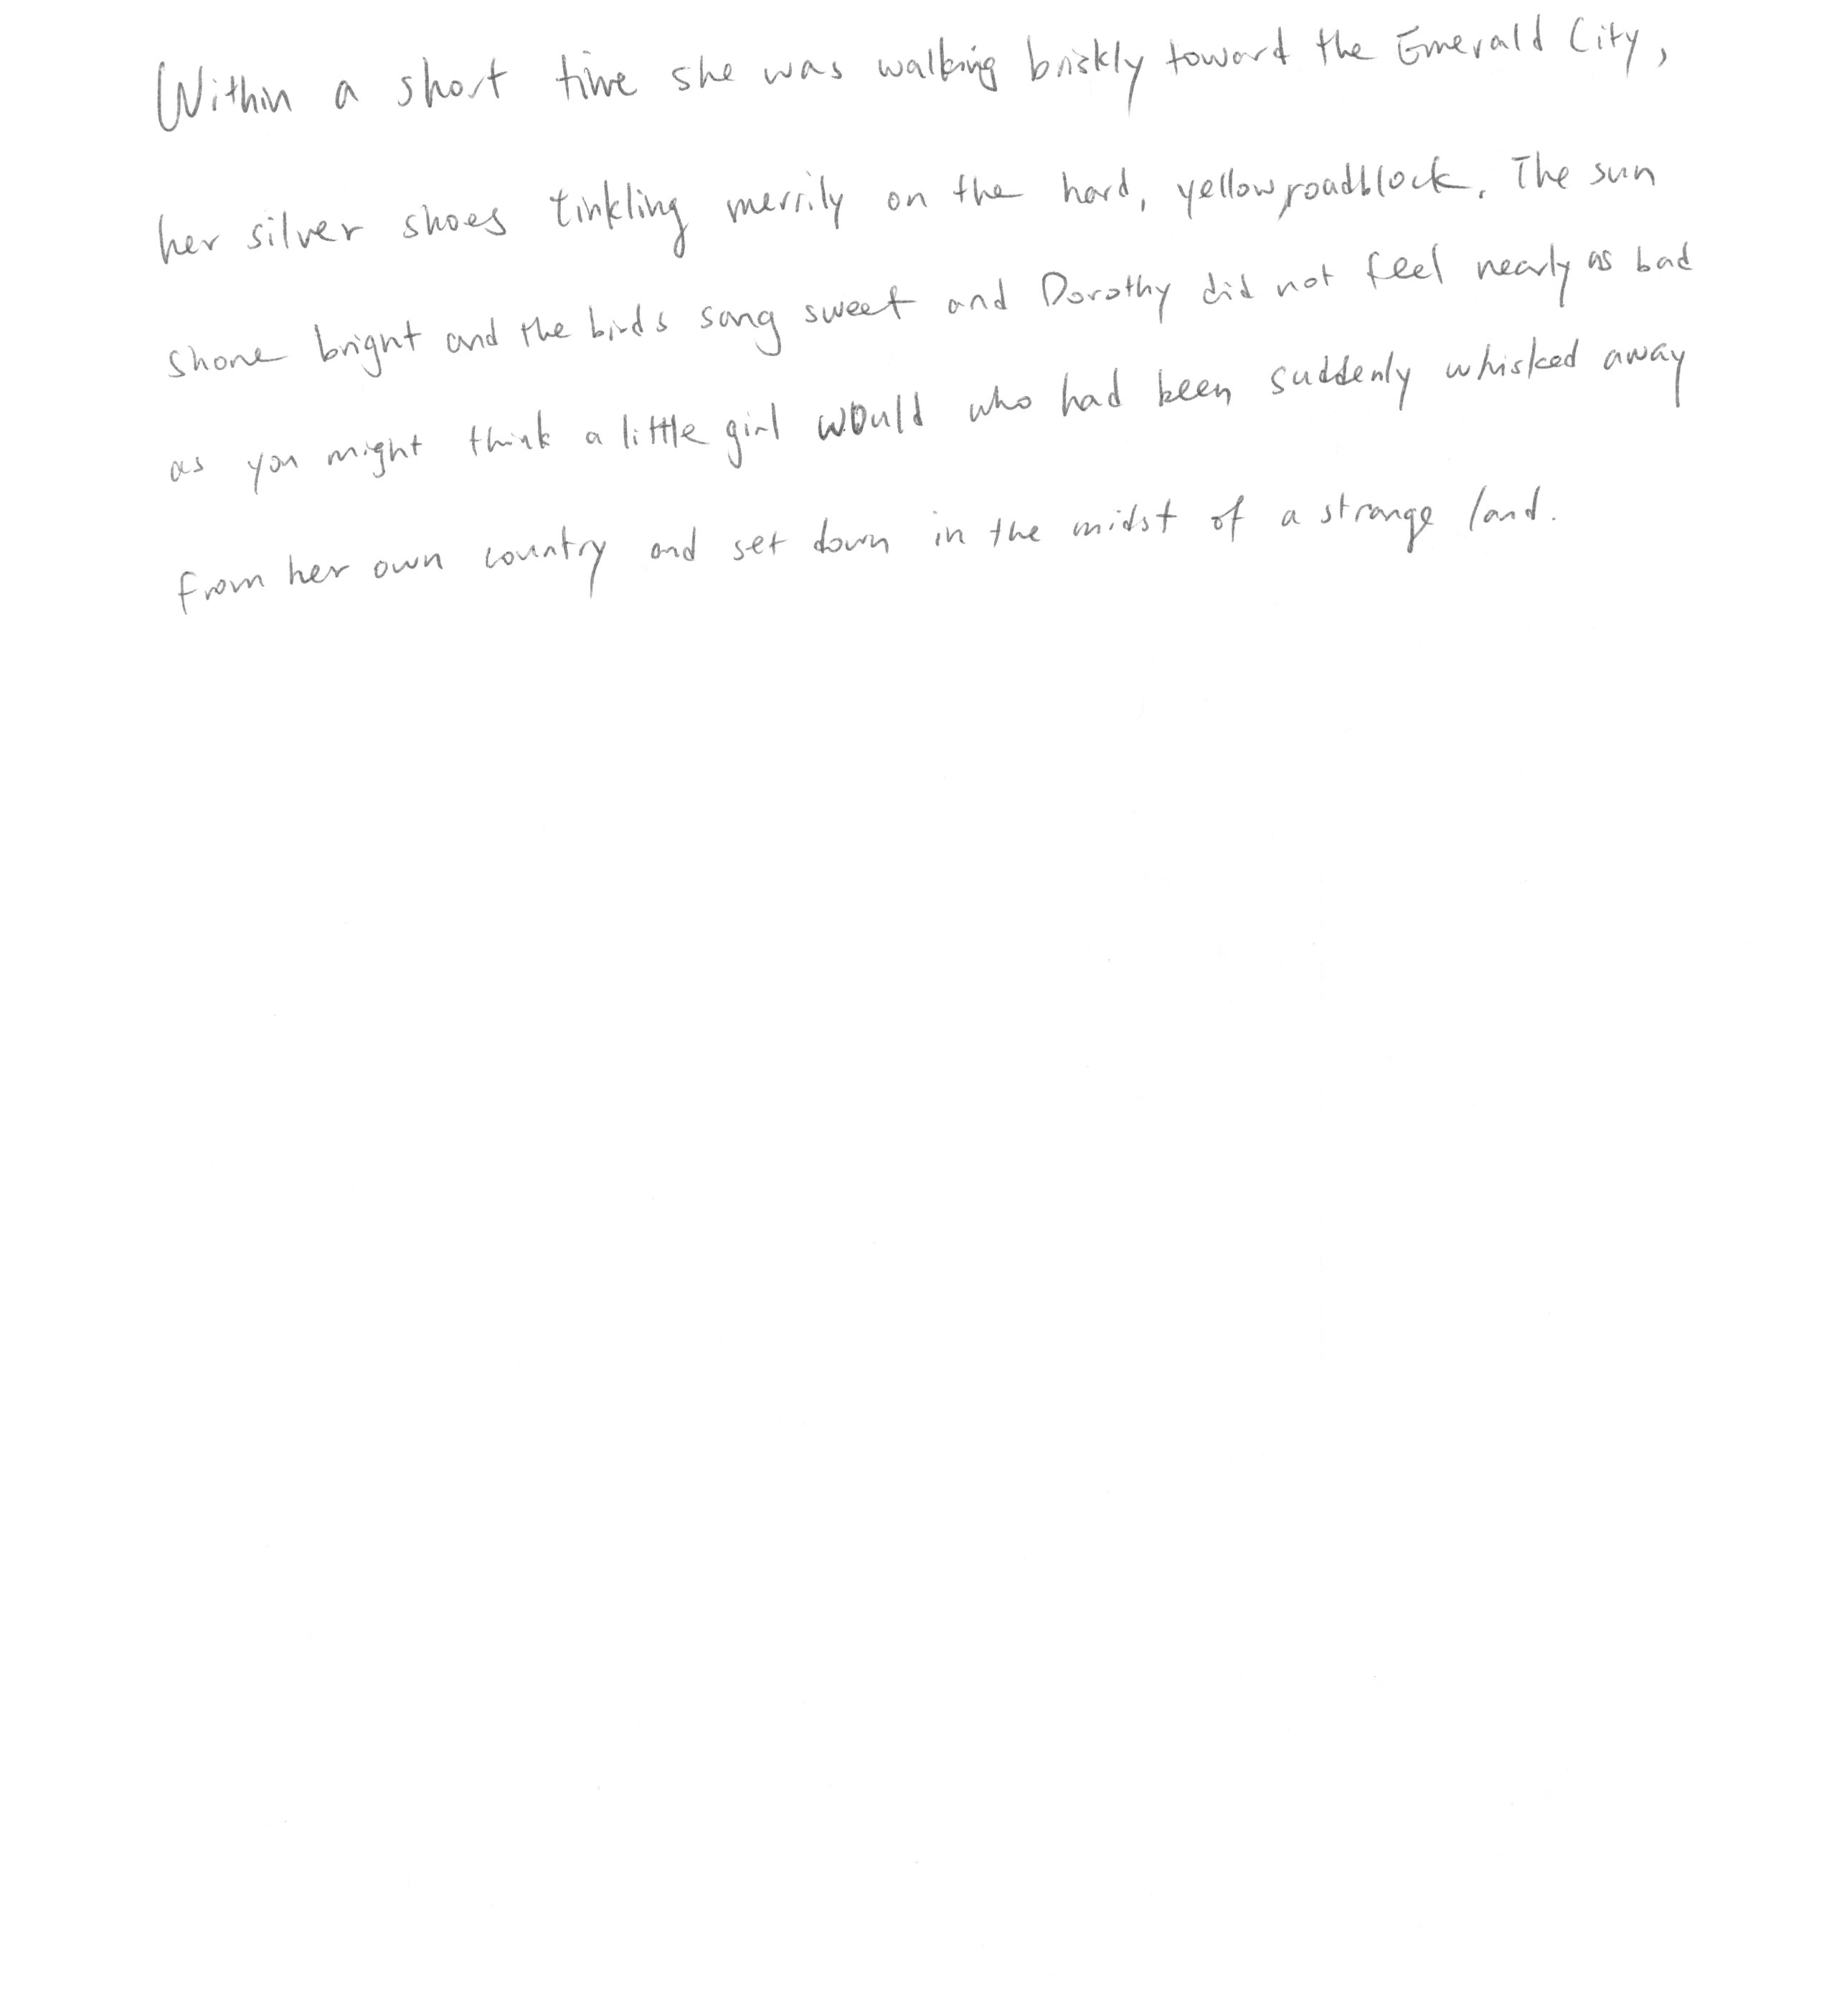 Within a short time she was walking briskly toward the Emerald City,
her silver shoes tinkling merrily on the hard, yellow roadblock. The sun
shone bright and the birds sang sweet and Dorothy did not feel nearly as bad
as you might think a little girl would who had been suddenly whisked away
from her own country and set down in the midst of a strange land.